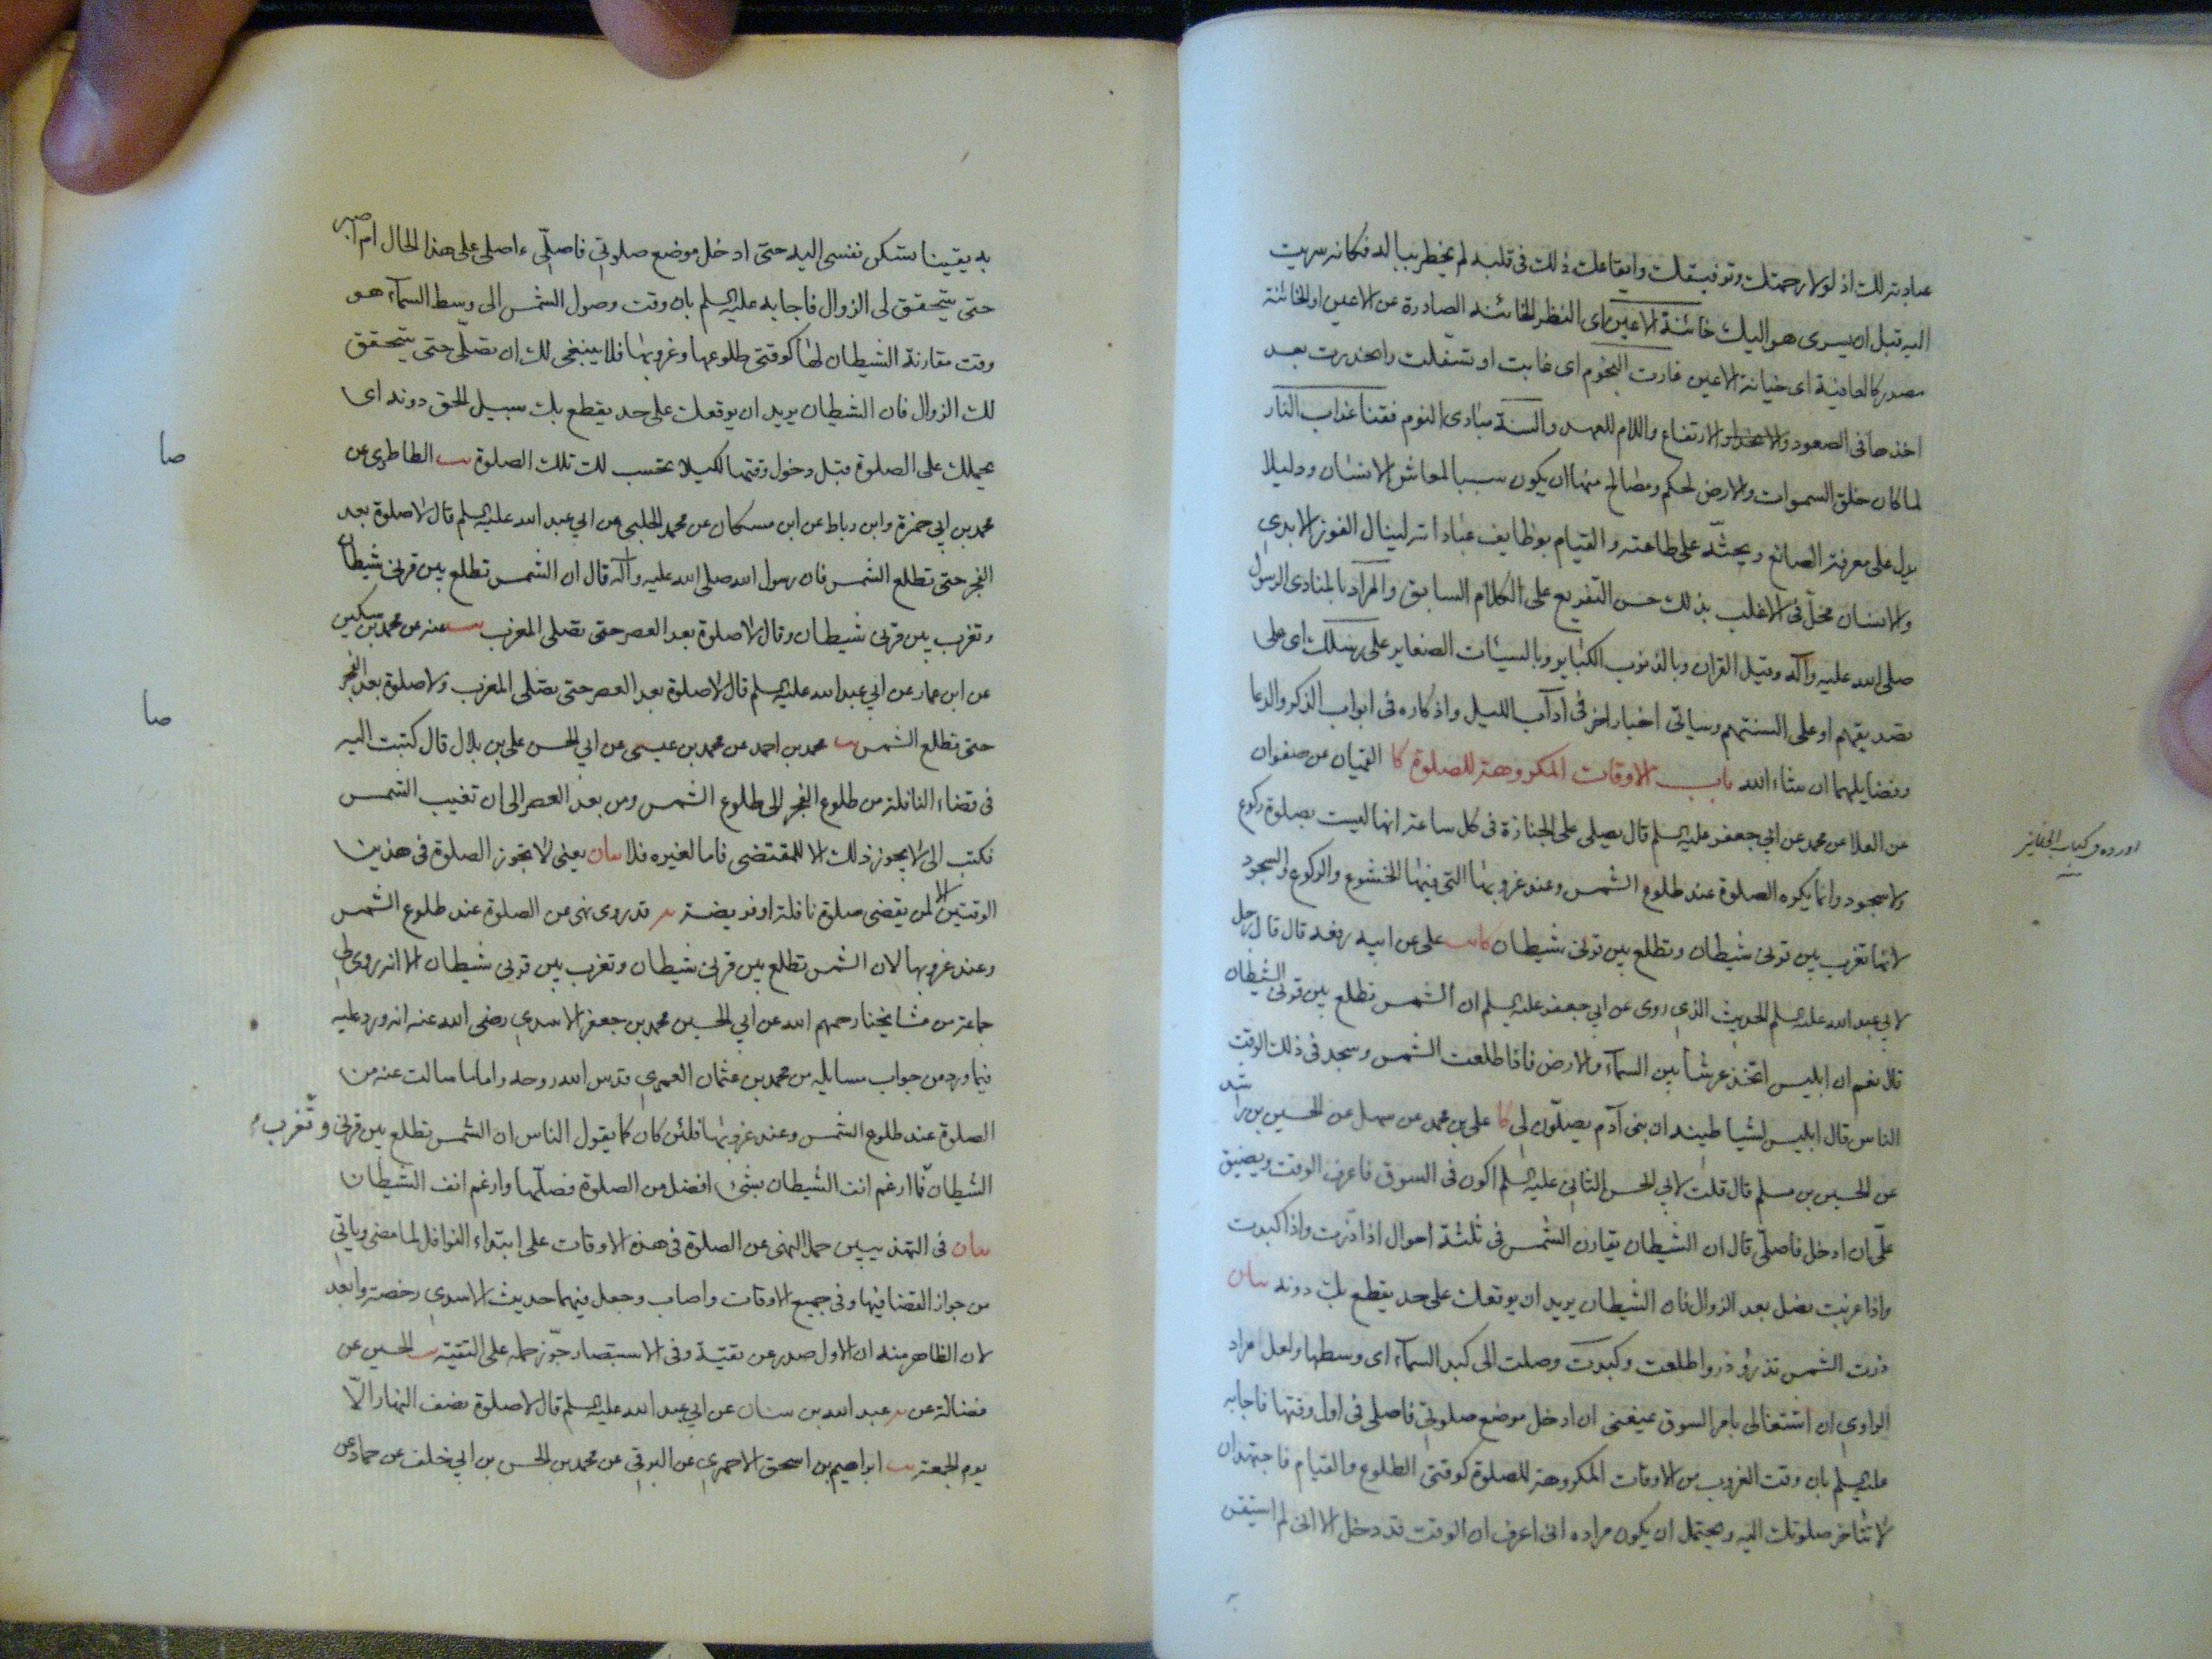 عبادته لك اذ لولا رحمتك وتوفيقك وايقاعك ذلك فى قلبه لم يخطر بباله فكانه سريت
اليه قبل ان يسرى هو اليك خائنة الاعين اى النظر الخائنه الصادرة عن الاعين او الخائنة
مصدر كالعافية اى خيانة الاعين غارت النجوم اى غابت او تسفلت وانحدرت بعد
اخذها فى الصعود والارتفاع واللام للعهد والسنة مبادى النوم فقنا عذاب النار
لما كان خلق السموات والارض لحكم ومصالح منها ان يكون سببا لمعاش الانسان ودليلا
يدل على معرفة الصانع ويحثه على طاعته والقيام بوظايف عباداته لينال الفوز الابدى
والانسان مخل فى الاغلب بذلك حسن التفريع على الكلام السابق والمراد بالمنادى الرسول
صلى الله عليه وآله وقيل القران وبالذنوب الكباير وبالسيئات الصغاير على رسلك اى على
تصديقهم او على السنتهم وسياتى اخبار اخر فى آداب الليل واذكاره فى ابواب الذكر والدعا
وفضايلهما ان شاء الله باب الاوقات المكروهة للصلوة كا القميان عن صفوان
عن العلا عن محمد عن ابي جعفر عليه السلم قال يصلى على الجنازة فى كل ساعة انها ليست بصلوة ركوع
ولا سجود وانما يكره الصلوة عند طلوع الشمس وعند غروبها التى فيها الخشوع والركوع والسجود
لانها تغرب بين قرنى شيطان وتطلع بين قرنى شيطان كا يب على عن ابيه رفعه قال قال رجل
لابي عبد الله عليه السلم الحديث الذى روى عن ابي جعفر عليه السلم ان الشمس تطلع بين قرنى الشيطان
قال نعم ان ابليس اتخذ عرشا بين السمآء والارض فاذا طلعت الشمس وسجد فى ذلك الوقت
الناس قال ابليس لشياطينه ان بنى آدم يصلون لى كا على بن محمد عن سهل عن الحسين بن راشد
عن الحسين بن مسلم قال قلت لابي الحسن الثانى عليه السلم اكون فى السوق فاعرف الوقت ويضيق
على ان ادخل فاصلى قال ان الشيطان يقارن الشمس فى ثلثة احوال اذا ذرت واذا كبدت
واذا غربت فصل بعد الزوال فان الشيطان يريد ان يوقعك على حد يقطع بك دونه بيان
ذرت الشمس تذر ذروا طلعت وكبدت وصلت الى كبد السمآء اى وسطها ولعل مراد
الراوى ان اشتغالى بامر السوق يمنعنى ان ادخل موضع صلوتى فاصلى فى اول وقتها فاجابه
عليه السلم بان وقت الغروب من الاوقات المكروهة للصلوة كوقتى الطلوع والقيام فاجتهد ان
لا تتاخر صلوتك اليه ويحتمل ان يكون مراده انى اعرف ان الوقت قد دخل الا انى لم استيقن
اورده فى كتاب الجنايز
به يقينا تسكن نفسى اليه حتى ادخل موضع صلوتى فاصلى ءاصلى على هذا الحال ام اصبر
حتى يتحقق لى الزوال فاجابه عليه السلم بان وقت وصول الشمس الى وسط السمآء هو
وقت مقارنة الشيطان لها كوقتى طلوعها وغروبها فلا ينبغى لك ان تصلى حتى يتحقق
لك الزوال فان الشيطان يريد ان يوقعك على حد يقطع بك سبيل الحق دونه اى
يحملك على الصلوة قبل دخول وقتها لكيلا تحتسب لك تلك الصلوة يب الطاطرى عن
محمد بن ابي حمزة وابن رباط عن ابن مسكان عن محمد الحلبى عن ابي عبد الله عليه السلم قال لا صلوة بعد
الفجر حتى تطلع الشمس فان رسول الله صلى الله عليه وآله قال ان الشمس تطلع بين قرنى شيطان
وتغرب بين قرنى شيطان وقال لا صلوة بعد العصر حتى تصلى المغرب يب عنه عن محمد بن سكين
عن ابن عمار عن ابي عبد الله عليه السلم قال لا صلوة بعد العصر حتى تصلى المغرب ولا صلوة بعد الفجر
حتى تطلع الشمس يب محمد بن احمد عن محمد بن عيسى عن ابي الحسن على بن بلال قال كتبت اليه
فى قضاء النافلة من طلوع الفجر الى طلوع الشمس ومن بعد العصر الى ان تغيب الشمس
فكتب الى لا يجوز ذلك الا للمقتضى فاما لغيره فلا بيان يعنى لا يجوز الصلوة فى هذين
الوقتين الا لمن يقضى صلوة نافلة او فريضة يه قد روى نهى عن الصلوة عند طلوع الشمس
وعند غروبها لان الشمس تطلع بين قرنى شيطان وتغرب بين قرنى شيطان الا انه روى لى
جماعة من مشايخنا رحمهم الله عن ابي الحسين محمد بن جعفر الاسدى رضى الله عنه انه ورد عليه
فيما ورد من جواب مسايله من محمد بن عثمان العمرى قدس الله روحه واما ما سالت عنه من
الصلوة عند طلوع الشمس وعند غروبها فلئن كان كما يقول الناس ان الشمس تطلع بين قرنى وتغرب
الشيطان فما ارغم انف الشيطان بشئ افضل من الصلوة فصلها وارغم انف الشيطان
بيان فى التهذيبين حمل النهى عن الصلوة فى هذه الاوقات على ابتداء النوافل لما مضى وياتى
من جواز القضا فيها وفى جميع الاوقات واصاب وجعل فيهما حديث الاسدى رخصة وابعد
لان الظاهر منه ان الاول صدر عن تقية وفى الاستبصار جوز حمله على التقية يب الحسين عن
فضالة عن يه عبد الله بن سنان عن ابي عبد الله عليه السلم قال لا صلوة نصف النهار الا
يوم الجمعة يب ابراهيم بن اسحق الاحمرى عن البرقى عن محمد بن الحسن بن ابي خلف عن حماد عن
صا
صا